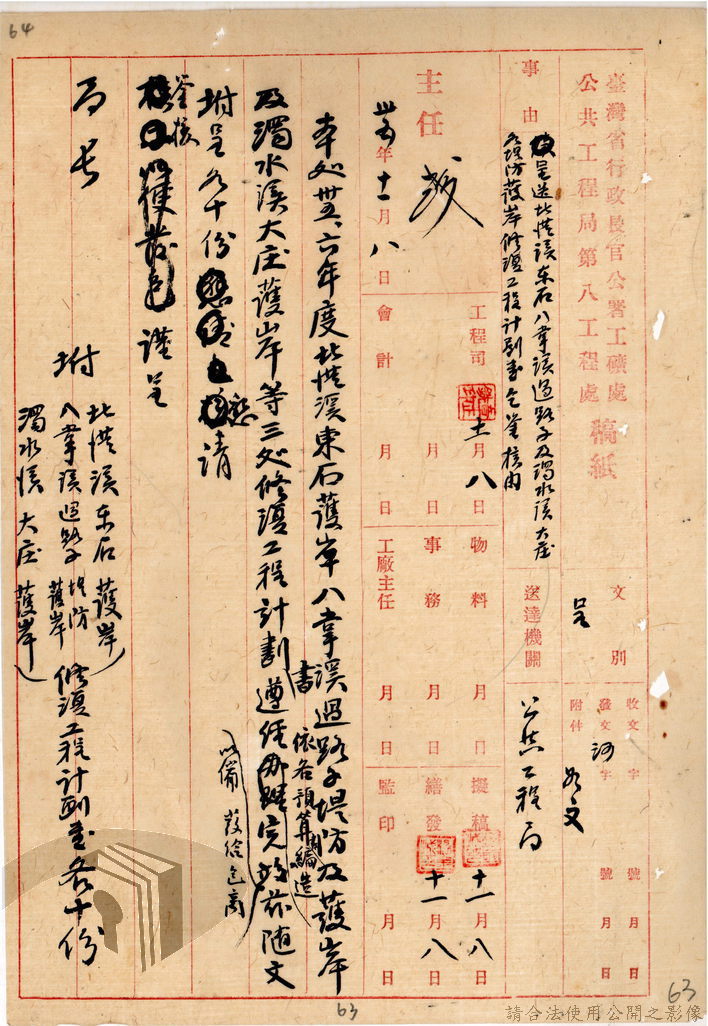 64
臺灣省行政長官公署工礦處
公共工程局第八工程處
稿紙
文別
呈
收文 字 號 月 日
發文 字 號 月 日
附件
如文
事由
呈送北港溪東石八掌溪過路子及濁水溪大庄
堤防護岸修復工程計劃書乞鑒核由
送達機關
公共工程局
主任
卅五年十一月八日
工程司 十一月八日
會計 月 日
月 日
物料 月 日
事務 月 日
工廠主任 月 日
擬稿 十一月八日
繕發 十一月八日
監印 月 日
本處卅五、六年度北港溪東石護岸八掌溪過路子堤防及護岸
及濁水溪大庄護岸等三處修復工程計劃書
依各預算編造
遵經辦理完竣茲隨文
附呈各十份
請
以備發給包商
鑒核
謹呈
局長
附
北港溪東石護岸
八掌溪過路子堤防護岸
濁水溪大庄護岸
修復工程計劃書各十份
63
63
請合法使用公開之影像